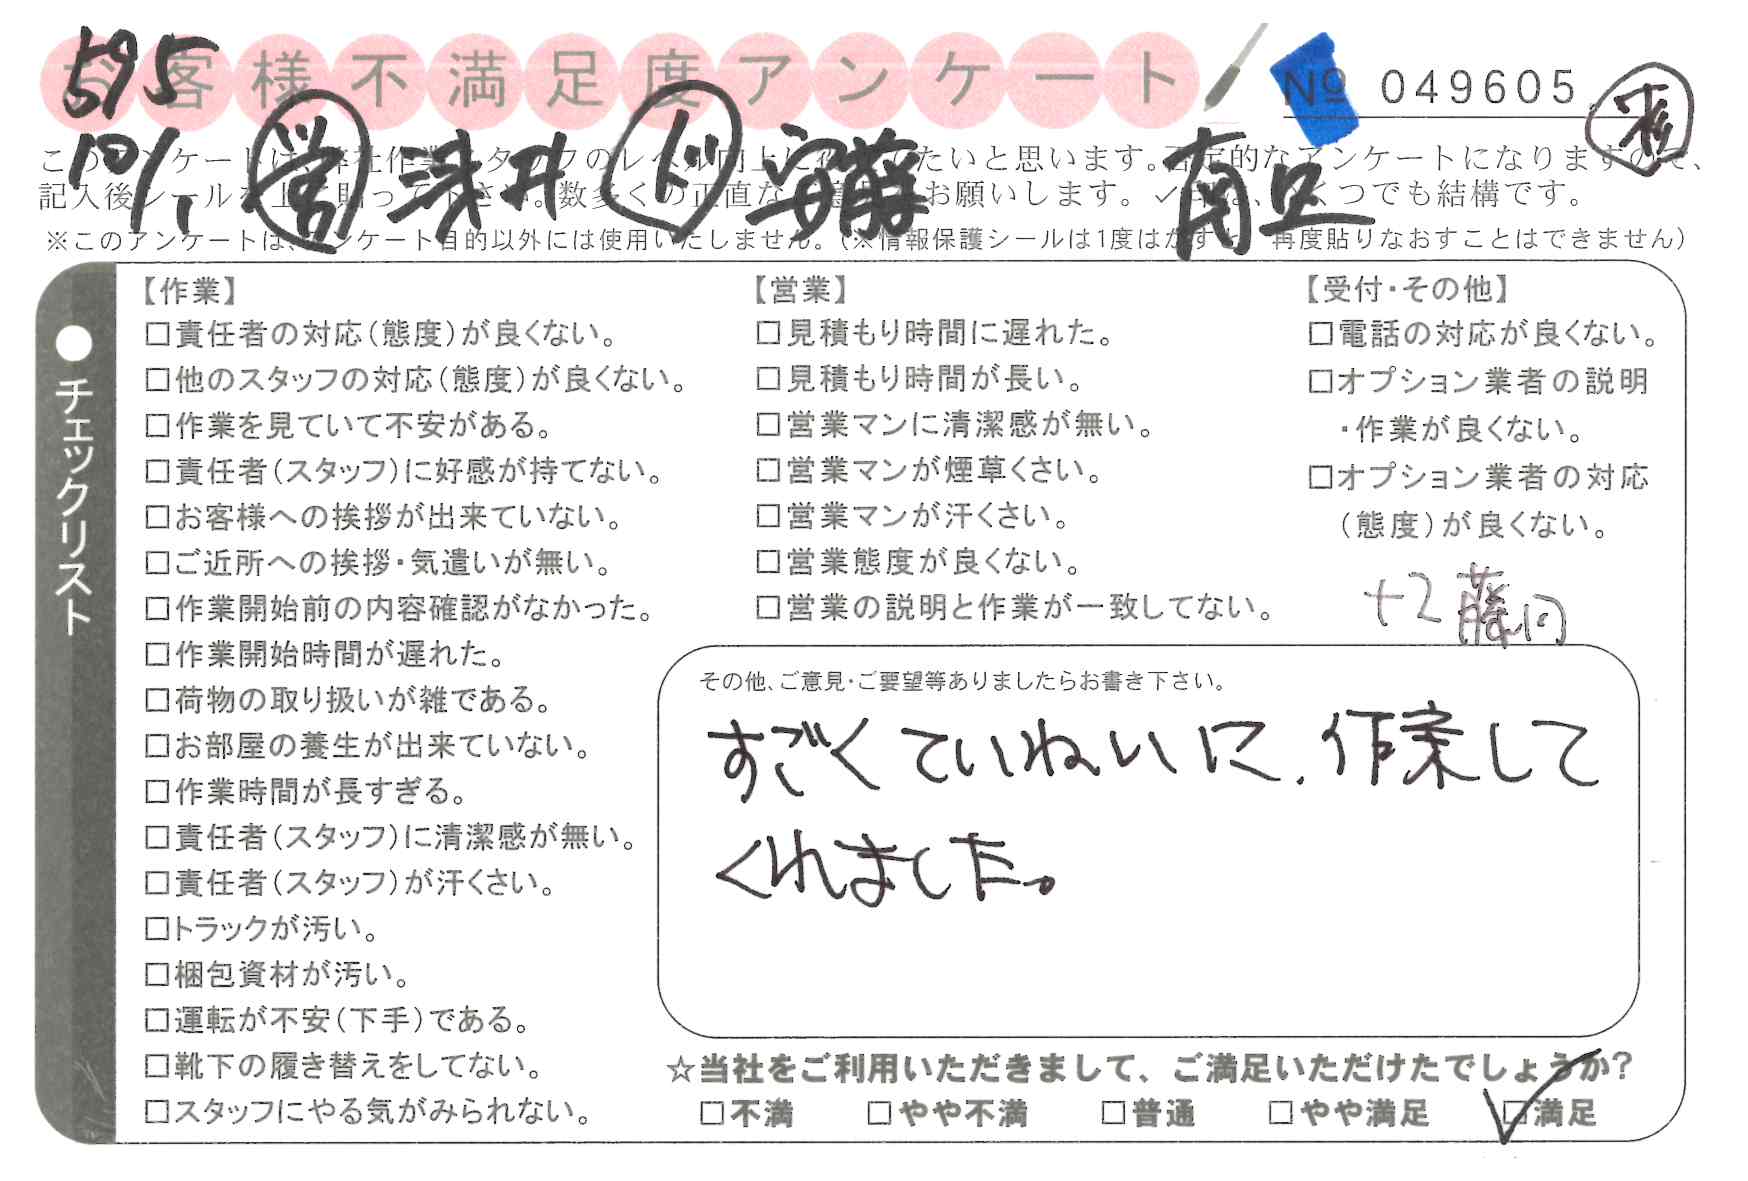 595
お客様不満足度アンケート
No 049605
10/1 営 浅井 ド 安藤 有豆
このアンケートは、弊社作業スタッフのレベル向上に役立てたいと思います。否定的なアンケートになりますので、
記入後シールを上に貼って下さい。数多くの正直なご意見をお願いします。✓印は、いくつでも結構です。
※このアンケートは、アンケート目的以外には使用いたしません。(※情報保護シールは1度はがすと、再度貼りなおすことはできません)
●チェックリスト
【作業】
□責任者の対応(態度)が良くない。
□他のスタッフの対応(態度)が良くない。
□作業を見ていて不安がある。
□責任者(スタッフ)に好感が持てない。
□お客様への挨拶が出来ていない。
□ご近所への挨拶・気遣いが無い。
□作業開始前の内容確認がなかった。
□作業開始時間が遅れた。
□荷物の取り扱いが雑である。
□お部屋の養生が出来ていない。
□作業時間が長すぎる。
□責任者(スタッフ)に清潔感が無い。
□責任者(スタッフ)が汗くさい。
□トラックが汚い。
□梱包資材が汚い。
□運転が不安(下手)である。
□靴下の履き替えをしてない。
□スタッフにやる気がみられない。
【営業】
□見積もり時間に遅れた。
□見積もり時間が長い。
□営業マンに清潔感が無い。
□営業マンが煙草くさい。
□営業マンが汗くさい。
□営業態度が良くない。
□営業の説明と作業が一致してない。
【受付・その他】
□電話の対応が良くない。
□オプション業者の説明
・作業が良くない。
□オプション業者の対応
(態度)が良くない。
+2 藤田
その他、ご意見・ご要望等ありましたらお書き下さい。
すごくていねいに、作業して
くれました。
☆当社をご利用いただきまして、ご満足いただけたでしょうか?
□不満 □やや不満 □普通 □やや満足 ☑満足